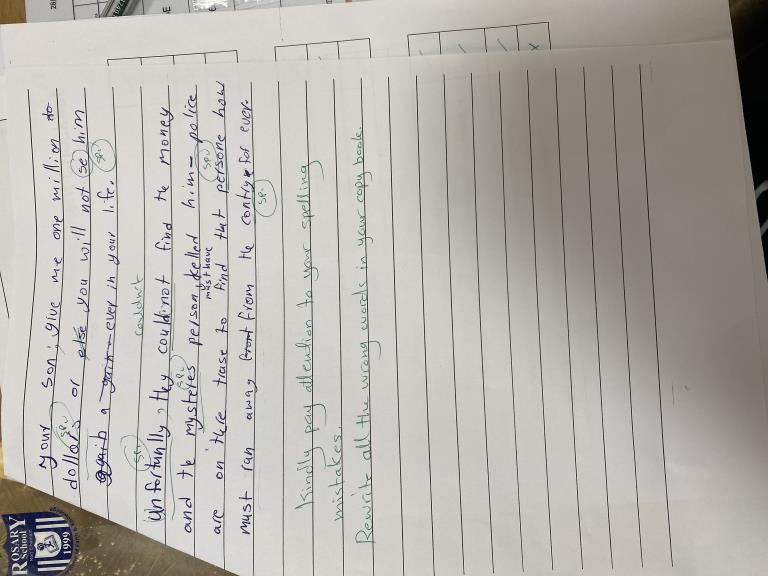 your son, give me one million
dollars or else you will not se him
sp.
sp.
a gain ever in your life.
couldn't
sp.
Unfortunally, they could not find the money
and the mysteres person kelled him - police
sp.
sp.
must have
are on there trase to find that persone how
must run away from the contry for ever.
sp.
Kindly pay attention to your spelling
mistakes.
Rewrite all the wrong words in your copy book.
ROSARY
School
1999